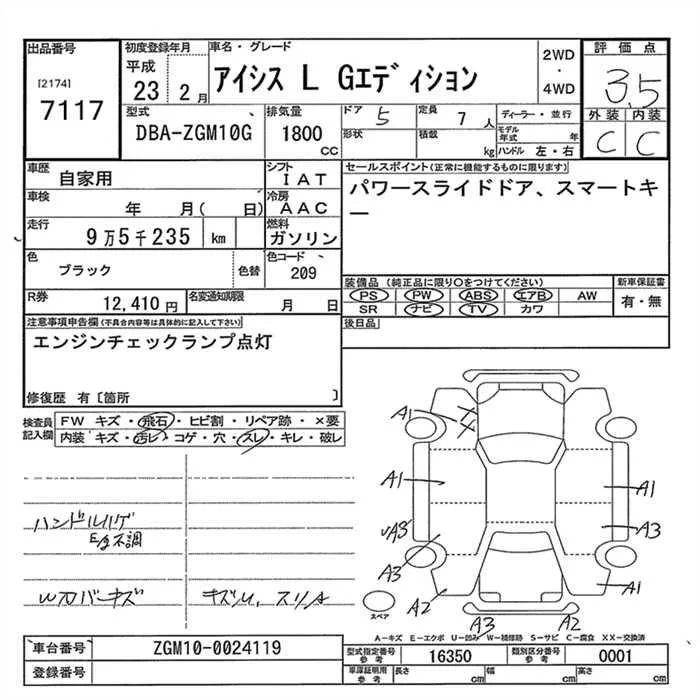 出品番号
[2174]
7117
初度登録年月
平成
23 2月
車名・グレード
アイシス L Gエディション
2WD
・
4WD
評価点
3.5
外装 内装
C C
型式
DBA-ZGM10G
排気量
1800
CC
ドア 5
定員 7 人
形状
積載 kg
ディーラー・並行
モデル年式 年
ハンドル 左・右
車歴
自家用
シフト
IAT
車検
年 月( 日)
冷房
AAC
走行
9万5千235 km
燃料
ガソリン
色
ブラック
色替
色コード
209
R券
12,410 円
名変通知期限
月 日
セールスポイント(正常に機能するものに限ります)
パワースライドドア、スマートキ
ー
装備品 (純正品に限り〇をつけてください)
PS PW ABS エアB AW
SR ナビ TV カワ
新車保証書
有・無
後日品
注意事項申告欄(不具合内容等は具体的に記入して下さい)
エンジンチェックランプ点灯
修復歴 有〔箇所 〕
検査員
記入欄
FW キズ・飛石・ヒビ割・リペア跡・×要
内装 キズ・汚レ・コゲ・穴・スレ・キレ・破レ
ハンドルハゲ
不調
バーキズ
A1
A1
A1
A3
A3
A3
A1
A2
A3
A2
スペア
A-キズ E-エクボ U-凹み W-補修跡 S-サビ C-腐食 XX-交換済
車台番号
ZGM10-0024119
登録番号
型式指定番号
参考
16350
類別区分番号
参考
0001
車庫証明用
参考
長さ cm 幅 cm 高さ cm